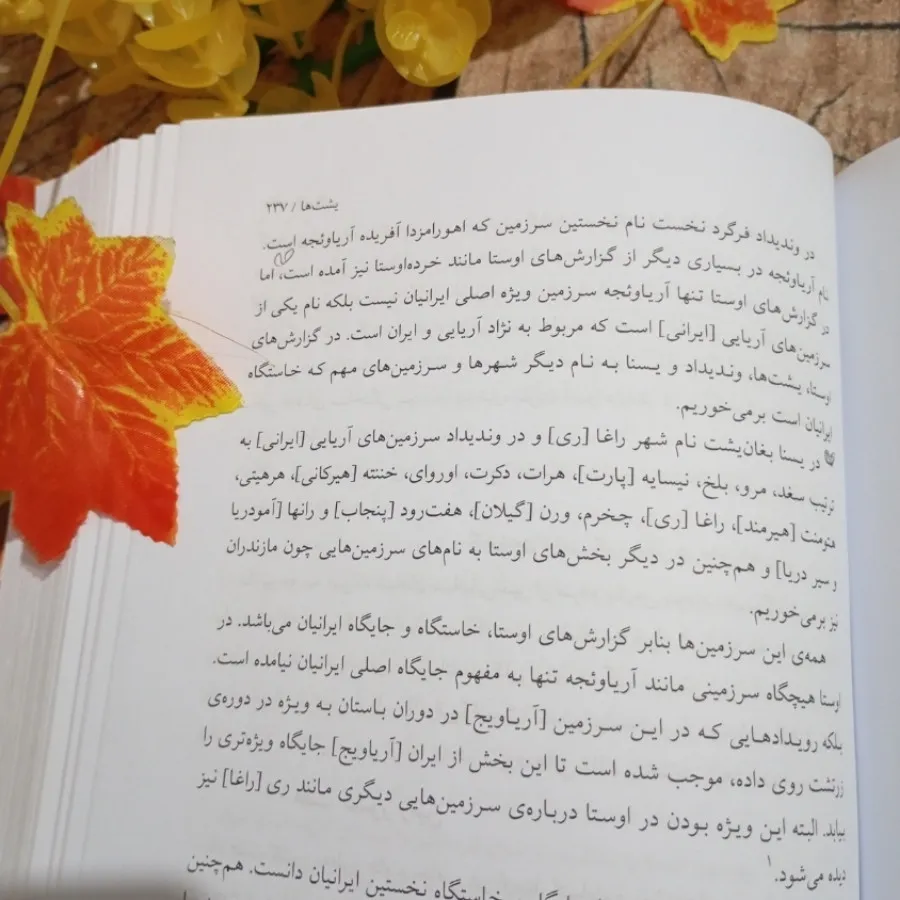 یشت‌ها / ۲۳۷
در وندیداد فرگرد نخست نام نخستین سرزمین که اهورامزدا آفریده آریاوئجه است.
نام آریاوئجه در بسیاری دیگر از گزارش‌های اوستا مانند خرده‌اوستا نیز آمده است، اما
در گزارش‌های اوستا تنها آریاوئجه سرزمین ویژه اصلی ایرانیان نیست بلکه نام یکی از
سرزمین‌های آریایی [ایرانی] است که مربوط به نژاد آریایی و ایران است. در گزارش‌های
اوستا، یشت‌ها، وندیداد و یسنا به نام دیگر شهرها و سرزمین‌های مهم که خاستگاه
ایرانیان است برمی‌خوریم.
در یسنا بغان‌یشت نام شهر راغا [ری] و در وندیداد سرزمین‌های آریایی [ایرانی] به
ترتیب سغد، مرو، بلخ، نیسایه [پارت]، هرات، دکرت، اوروای، خننته [هیرکانی]، هرهیتی،
هتومنت [هیرمند]، راغا [ری]، چخرم، ورن [گیلان]، هفت‌رود [پنجاب] و رانها [آمودریا
و سیر دریا] و هم‌چنین در دیگر بخش‌های اوستا به نام‌های سرزمین‌هایی چون مازندران
نیز برمی‌خوریم.
همه‌ی این سرزمین‌ها بنابر گزارش‌های اوستا، خاستگاه و جایگاه ایرانیان می‌باشد. در
اوستا هیچگاه سرزمینی مانند آریاوئجه تنها به مفهوم جایگاه اصلی ایرانیان نیامده است.
بلکه رویدادهایی که در این سرزمین [آریاویج] در دوران باستان به ویژه در دوره‌ی
زرتشت روی داده، موجب شده است تا این بخش از ایران [آریاویج] جایگاه ویژه‌تری را
بیابد. البته این ویژه بودن در اوستا درباره‌ی سرزمین‌هایی دیگری مانند ری [راغا] نیز
دیده می‌شود.۱
خاستگاه نخستین ایرانیان دانست. هم‌چنین